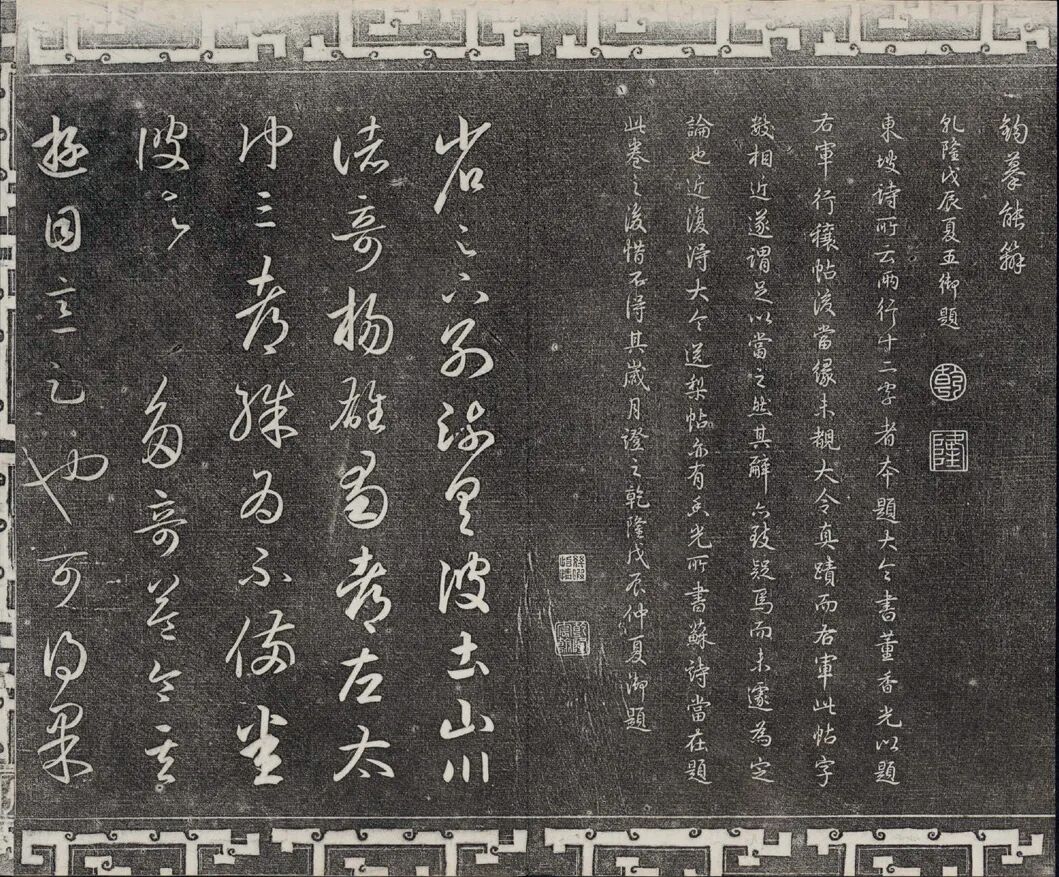 鉤摹能辨
乾隆戊辰夏五御題
乾
隆
東坡詩所云兩行十二字者本題大令書董香光以題
右軍行穰帖後當緣未覩大令真蹟而右軍此帖字
數相近遂謂足以當之然其辭亦致疑焉而未遽為定
論也近復得大令送梨帖亦有香光所書蘇詩當在題
此卷之後惜不得其歲月證之乾隆戊辰仲夏御題
幾暇怡情
乾隆宸翰
省足下別疏具彼土山川
諸奇楊雄蜀都左太
沖三都殊為不備悉
彼故為多奇益令其
遊目意足也可得果